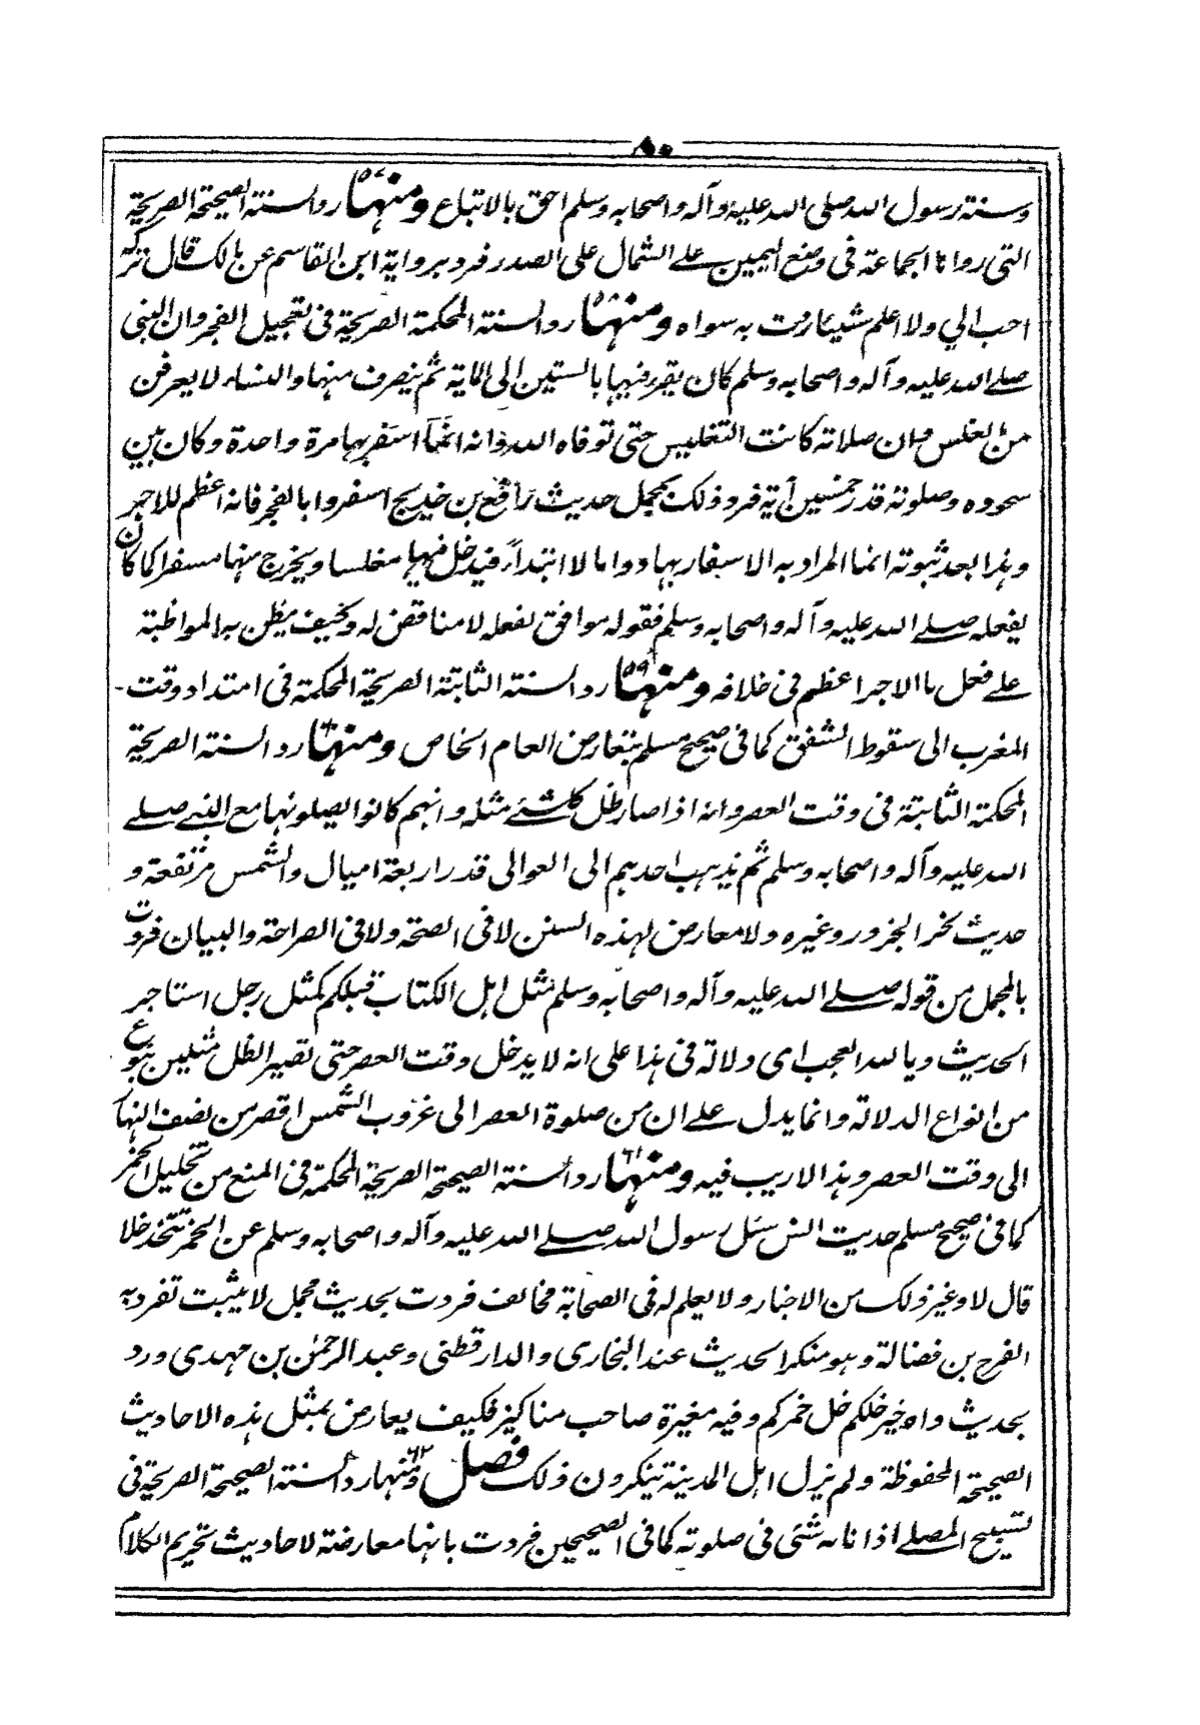 ٨٠
وسنة رسول الله صلى الله عليه وآله واصحابه وسلم احق بالاتباع ومنها ٥٧ رد السنة الصحيحة الصريحة
التي رواها الجماعة في وضع اليمين على الشمال على الصدر فرد برواية ابن القاسم عن مالك قال تركه
احب الي ولا اعلم شيئا ردت به سواه ومنها ٥٨ رد السنة المحكمة الصريحة في تعجيل الفجر وان النبي
صلے الله عليه وآله واصحابه وسلم كان يقرء فيها بالستين الى المایة ثم ينصرف منها والنساء لا يعرفن
من الغلس وان صلاته كانت التغليس حتى توفاه الله وانه انما اسفر بها مرة واحدة وكان بين
سحوره وصلوته قدر خمسين آية فرد ذلك بمجمل حديث رافع بن خديج اسفروا بالفجر فانه اعظم للاجر
وهذا بعد ثبوته انما المراد به الاسفار بها دواما لا ابتداءً فيدخل فيها مغلسا ويخرج منها مسفرا كما كان
يفعله صلے الله عليه وآله واصحابه وسلم فقوله موافق لفعله لا مناقض له وكيف يظن به المواظبة
علے فعل ما الاجر اعظم في خلافه ومنها ٥٩ رد السنة الثابتة الصريحة المحكمة في امتداد وقت
المغرب الى سقوط الشفق كما في صحيح مسلم بتعارض العام الخاص ومنها ٦٠ رد السنة الصريحة
المحكمة الثابتة في وقت العصر وانه اذا صار ظل كل شئے مثله وانهم كانوا يصلونها مع النبے صلے
الله عليه وآله واصحابه وسلم ثم يذهب احدهم الى العوالى قدر اربعة اميال والشمس مرتفعة و
حديث نحر الجزور وغيره ولا معارض لهذه السنن لا في الصحة ولا في الصراحة والبيان فردت
بالمجمل من قوله صلے الله عليه وآله واصحابه وسلم مثل اهل الكتاب قبلكم كمثل رجل استاجر
الحديث ويا لله العجب اى دلالة في هذا على انه لا يدخل وقت العصر حتى تصير الظل مثلين بنوع
من انواع الدلالة وانما يدل علے ان من صلوة العصر الى غروب الشمس اقصر من نصف النهار
الى وقت العصر وهذا لا ريب فيه ومنها ٦١ رد السنة الصحيحة الصريحة المحكمة في المنع من تحليل الخمر
كما في صحيح مسلم حديث انس سئل رسول الله صلے الله عليه وآله واصحابه وسلم عن الخمر تتخذ خلا
قال لا وغير ذلك من الاخبار ولا يعلم له في الصحابة مخالف فردت بحديث مجمل لا يثبت تفرد به
الفرج بن فضالة وهو منكر الحديث عند البخارى والدارقطنى وعبد الرحمٰن بن مهدى ورد
بحديث واه خير خلكم خل خمركم وفيه مغيرة صاحب مناكير فكيف يعارض بمثل هذه الاحاديث
الصحيحة المحفوظة ولم يزل اهل المدينة ينكرون ذلك فصل ومنها ٦٢ رد السنة الصحيحة الصريحة في
تسبيح المصلے اذا نابه شئى في صلوته كما في الصحيحين فردت بانها معارضة لاحاديث تحريم الكلام